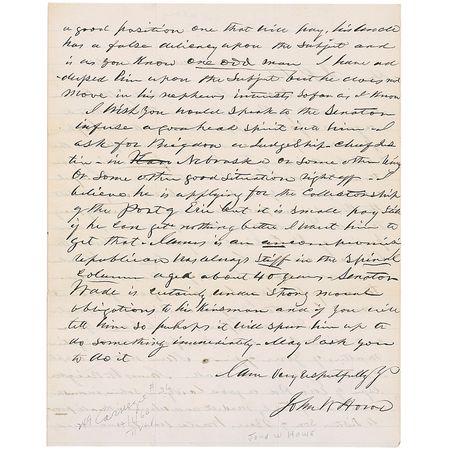 a good position one that will pay, his Uncle
has a false delicacy upon the Subject and
is as you know one odd man I have ad-
dressed him upon the Subject but he does not
move in his nephews interests so far as I know
I wish you would speak to the Senator
infuse a goahead spirit in him
ask for Judgeship
in Nebraska or some other
Or some other good situation right off - I
believe he is applying for the Collectorship
of the Port of Erie but it is small pay still
if he can get nothing better I want him to
get that - is an uncompromising
republican was always stiff in the spinal
Column aged about 40 years - Senator
Wade is certainly under strong moral
obligations to his Kinsman and if you will
tell him so perhaps it will spur him up to
do something immediately - May I ask you
to do it
I am Very respectfully Yr
John W Howe
John W Howe